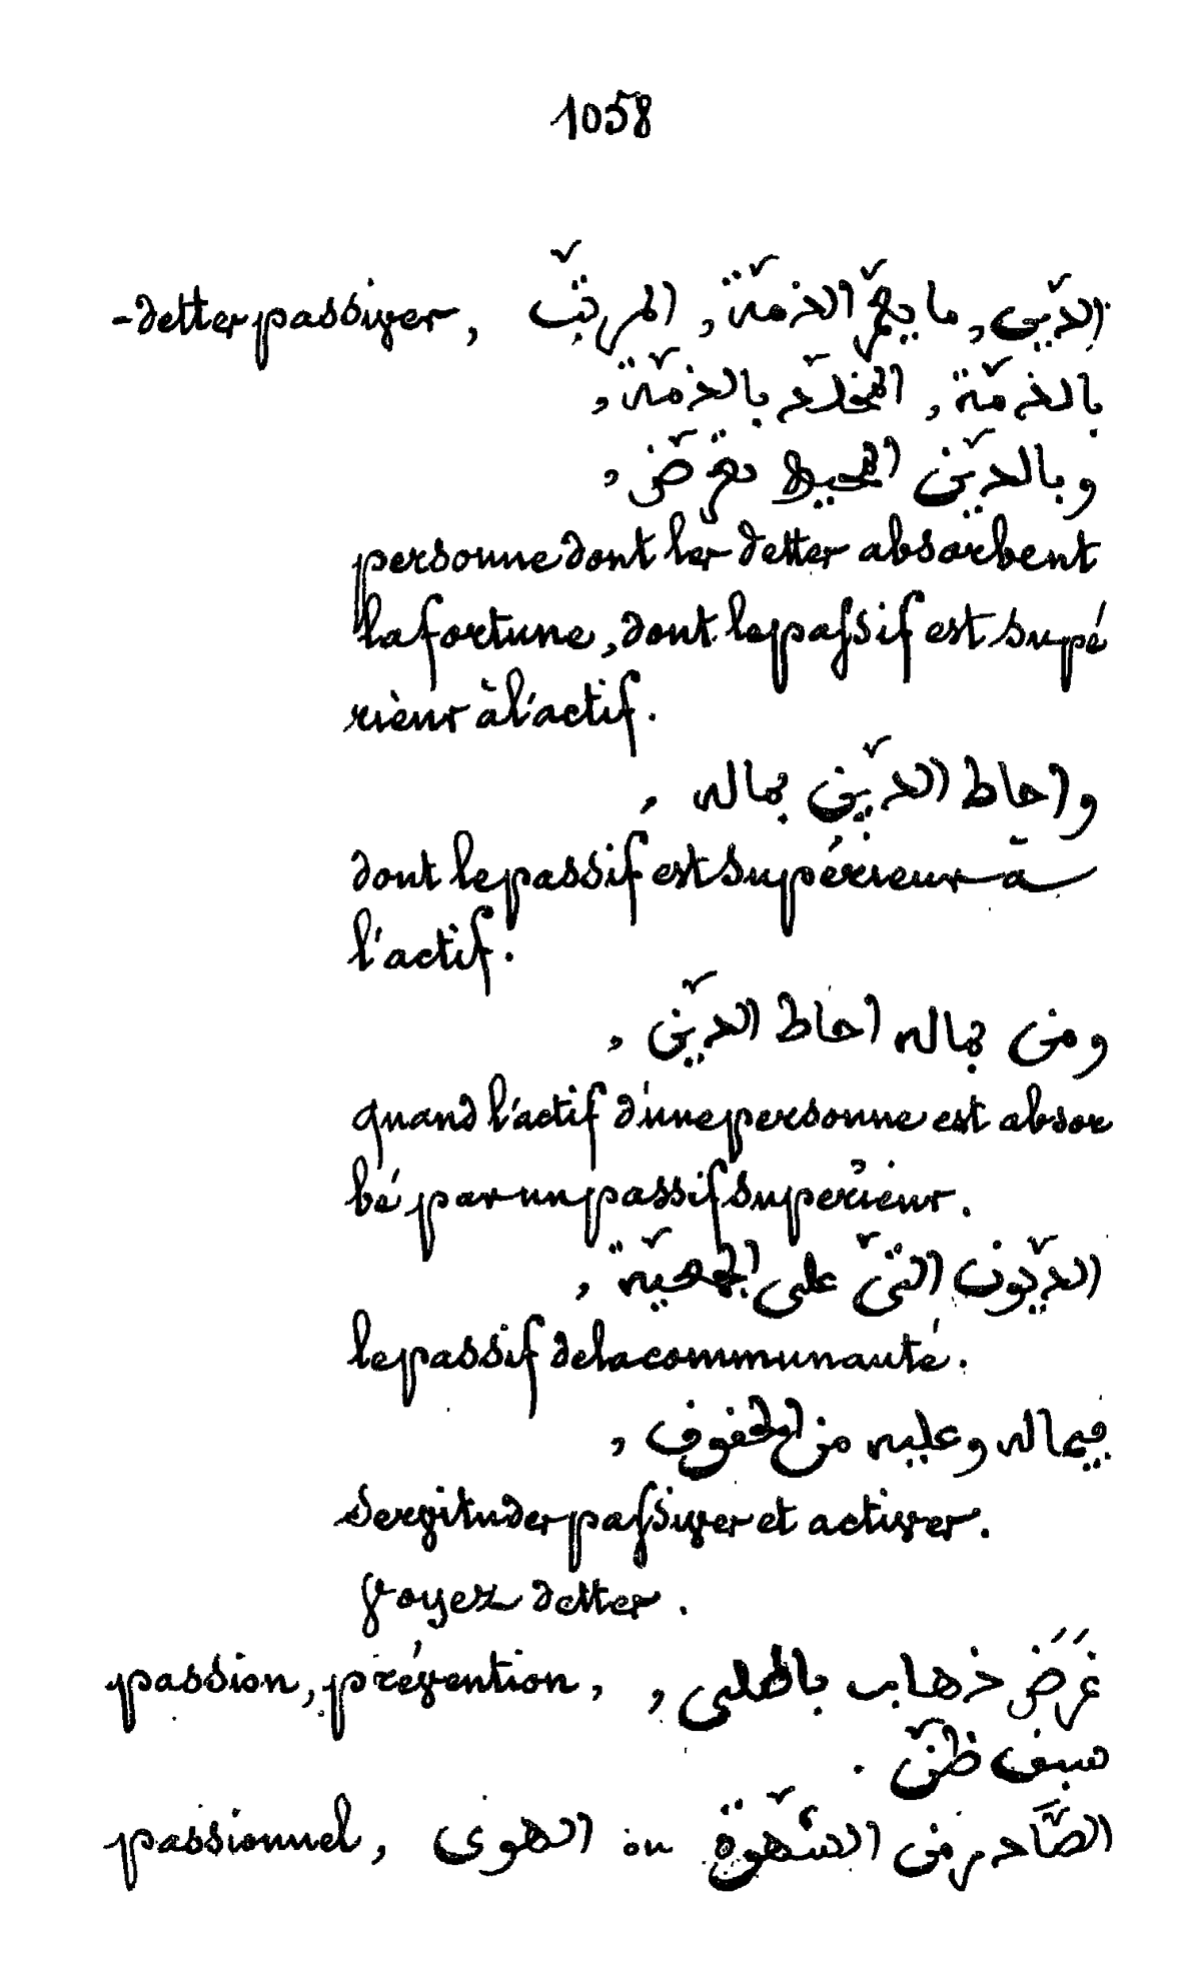 1058
-dettes passives, الدّين, ما يعمّر الذمّة, المرتّب
بالذمّة, المخلّد بالذمّة,
وبالدّين المحيط
personne dont les dettes absorbent
la fortune, dont le passif est supé
rieur à l'actif.
واحاط الدّين بماله,
dont le passif est supérieur à
l'actif.
ومن بماله احاط الدّين,
quand l'actif d'une personne est absor
bé par un passif supérieur.
الديّون التّي على الجمعيّة,
le passif de la communauté.
فيما له وعليه من الحقوق,
servitudes passives et actives.
Voyez dettes.
passion, prévention, غَرَض ذهاب بالطلبى,
سبق ظنّ.
passionnel, الصَّادر من الشّهوة ou الهوى